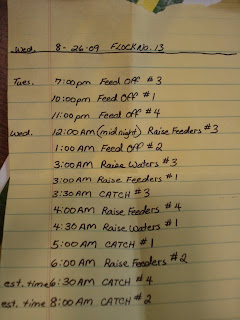 Wed. 8-26-09 FLOCK No. 13
Tues. 7:00pm Feed Off #3
10:00pm Feed Off #1
11:00pm Feed Off #4
Wed. 12:00 AM (midnight) Raise Feeders #3
1:00 AM Feed Off #2
3:00 AM Raise Waters #3
3:00 AM Raise Feeders #1
3:30 AM CATCH #3
4:00 AM Raise Feeders #4
4:30 AM Raise Waters #1
5:00 AM CATCH #1
6:00 AM Raise Feeders #2
est. time 6:30 AM CATCH #4
est. time 8:00 AM CATCH #2